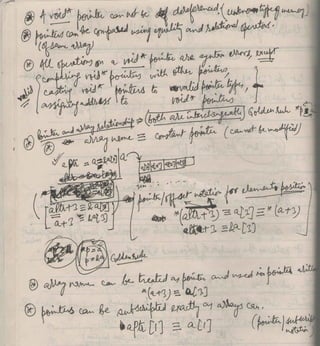 ⊛ A void* pointer can not be dereferenced (unknown type memory)
⊛ pointers can be compared using equality and relational operators.
(of same array)
⊛ All operations on a void* pointer are syntax errors, except
comparing void* pointers with other pointers,
valid casting void* pointers to valid pointer types,
assigning address to void* pointers
⊛ Pointer and array relationship ⊛ (both are interchangeable) Golden rule
array name ≡ constant pointer (cannot be modified)
aPtr = a
pointer/offset notation for element position
aPtr+3 ≡ &a[3]
a+3 ≡ &a[3]
*(aPtr+3) ≡ a[3] ≡ *(a+3)
aPtr+3 ≡ &a[3]
p=a
Golden rule
⊛ array name can be treated as pointer and used in pointer
*(a+3) ≡ a[3]
⊛ pointers can be subscripted exactly as arrays can.
aPtr[1] ≡ a[1] (pointer/subscript
notation